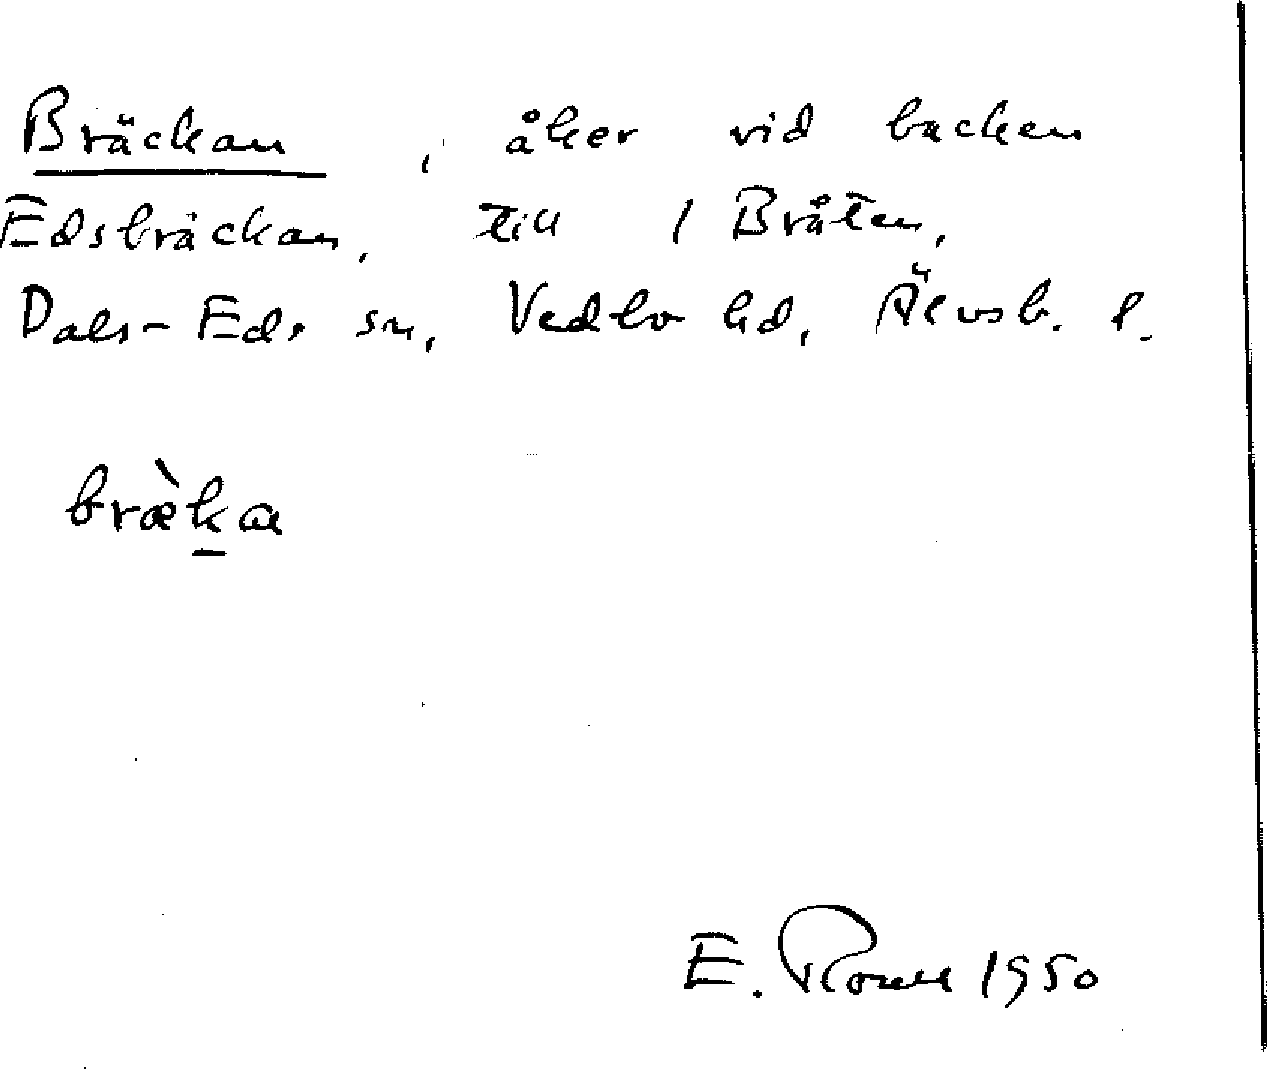 Bräckan, åker vid backen
Edsbräckan, till 1 Bråten,
Dals-Eds sn, Vedbo hd, Älvsb. l.
bræ̀k̲a
E. 1950